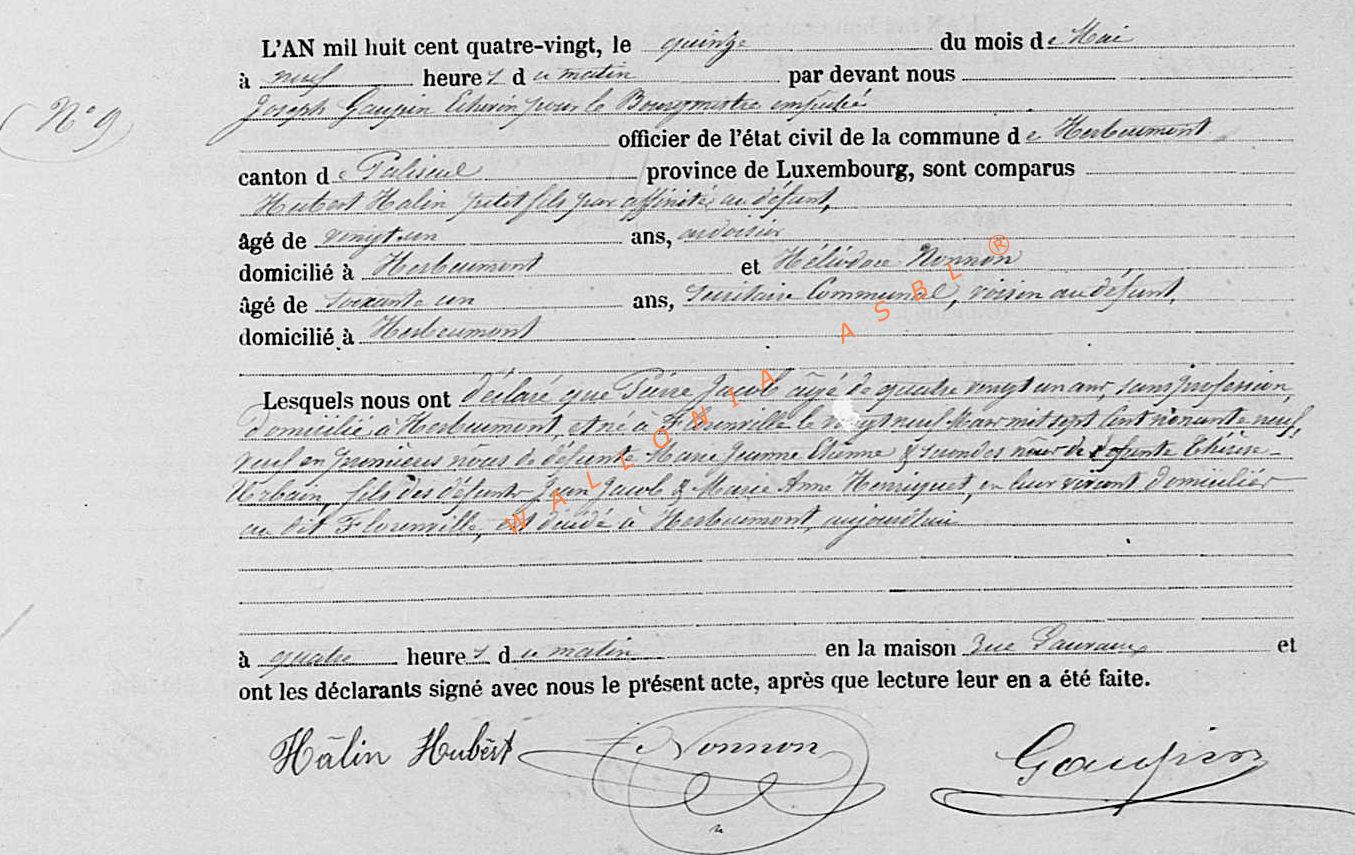 L'AN mil huit cent quatre-vingt, le quinze du mois de Mai
à neuf heures du matin par devant nous
N° 9
Joseph Gaupin Echevin pour le Bourgmestre empêché
officier de l'état civil de la commune de Herbeumont
canton de Paliseul province de Luxembourg, sont comparus
Hubert Halin petit fils par affinité au défunt,
âgé de vingt un ans, ardoisier
domicilié à Herbeumont et Héliodore Nonnon
âgé de soixante un ans, Secrétaire Communal, voisin au défunt,
domicilié à Herbeumont
Lesquels nous ont déclaré que Pierre Jacob âgé de quatre vingt un ans, sans profession,
domicilié à Herbeumont, et né à Florenville le vingt neuf Mars mil sept cent nonante neuf,
veuf en premières noces de défunte Marie Jeanne Etienne & secondes noces de défunte Thérèse
Urbain, fils des défunts Jean Jacob & Marie Anne Henriquet, en leur vivant domiciliés
au dit Florenville, est décédé à Herbeumont, aujourd'hui
à quatre heures du matin en la maison Rue et
ont les déclarants signé avec nous le présent acte, après que lecture leur en a été faite.
Hâlin Hubert Nonnon Gaupin
WALLONIA ASBL ®